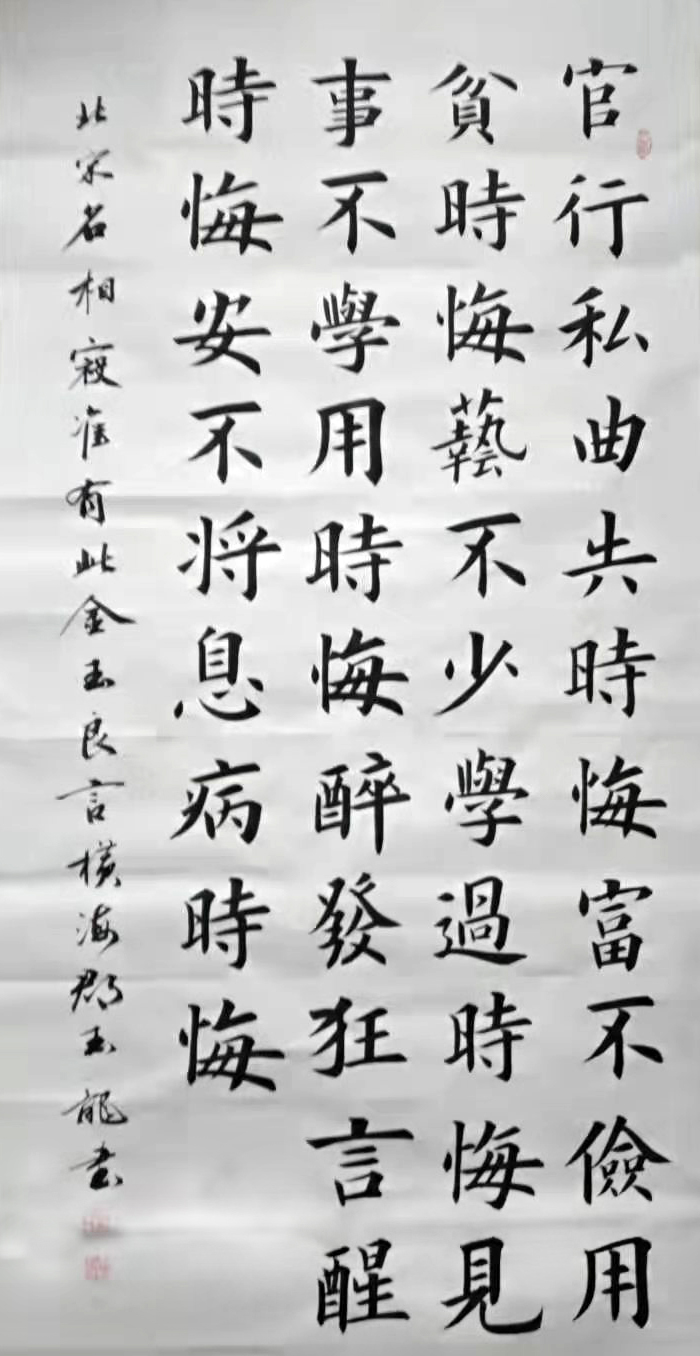 官行私曲失時悔富不儉用
貧時悔藝不少學過時悔見
事不學用時悔醉發狂言醒
時悔安不将息病時悔
北宋名相寇准有此金玉良言横海郡玉龍書